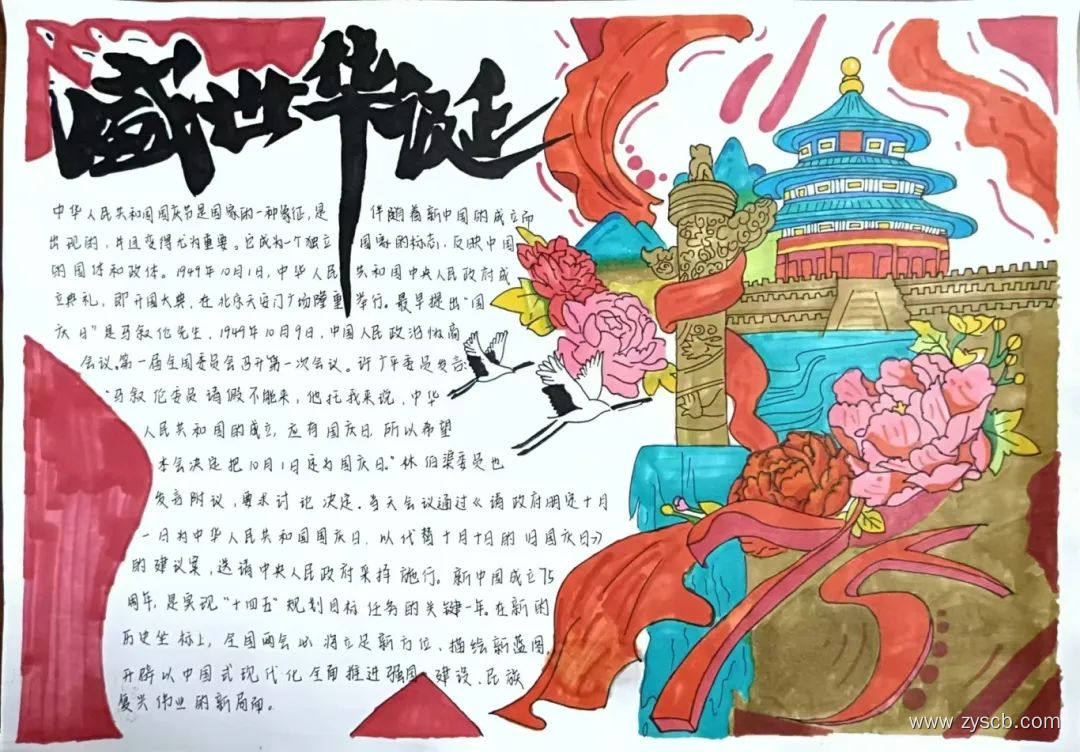 盛世华诞
中华人民共和国国庆节是国家的一种象征,是伴随着新中国的成立而
出现的,并且变得尤为重要。它成为一个独立国家的标志,反映中国
的国体和政体。1949年10月1日,中华人民共和国中央人民政府成
立典礼,即开国大典,在北京天安门广场隆重举行。最早提出"国
庆日"是马叙伦先生,1949年10月9日,中国人民政治协商
会议第一届全国委员会召开第一次会议。许广平委员发言:
"马叙伦委员请假不能来,他托我来说,中华
人民共和国的成立,应有国庆日,所以希望
本会决定把10月1日定为国庆日。"林伯渠委员也
发言附议,要求讨论决定。当天会议通过《请政府明定十月
一日为中华人民共和国国庆日,以代替十月十日的旧国庆日》
的建议案,送请中央人民政府采择施行。新中国成立75
周年,是实现"十四五"规划目标任务的关键一年。在新的
历史坐标上,全国两会必将立足新方位、描绘新蓝图,
开辟以中国式现代化全面推进强国建设、民族
复兴伟业的新局面。
75
www.zyscb.com